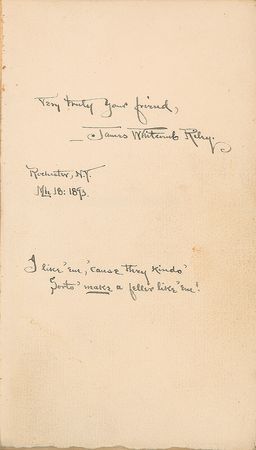 Very truly your friend,
— James Whitcomb Riley.
Rochester, N.Y.
Mch 18: 1893.
I like 'em, 'cause they kindo'
Sorto' make a feller like 'em!